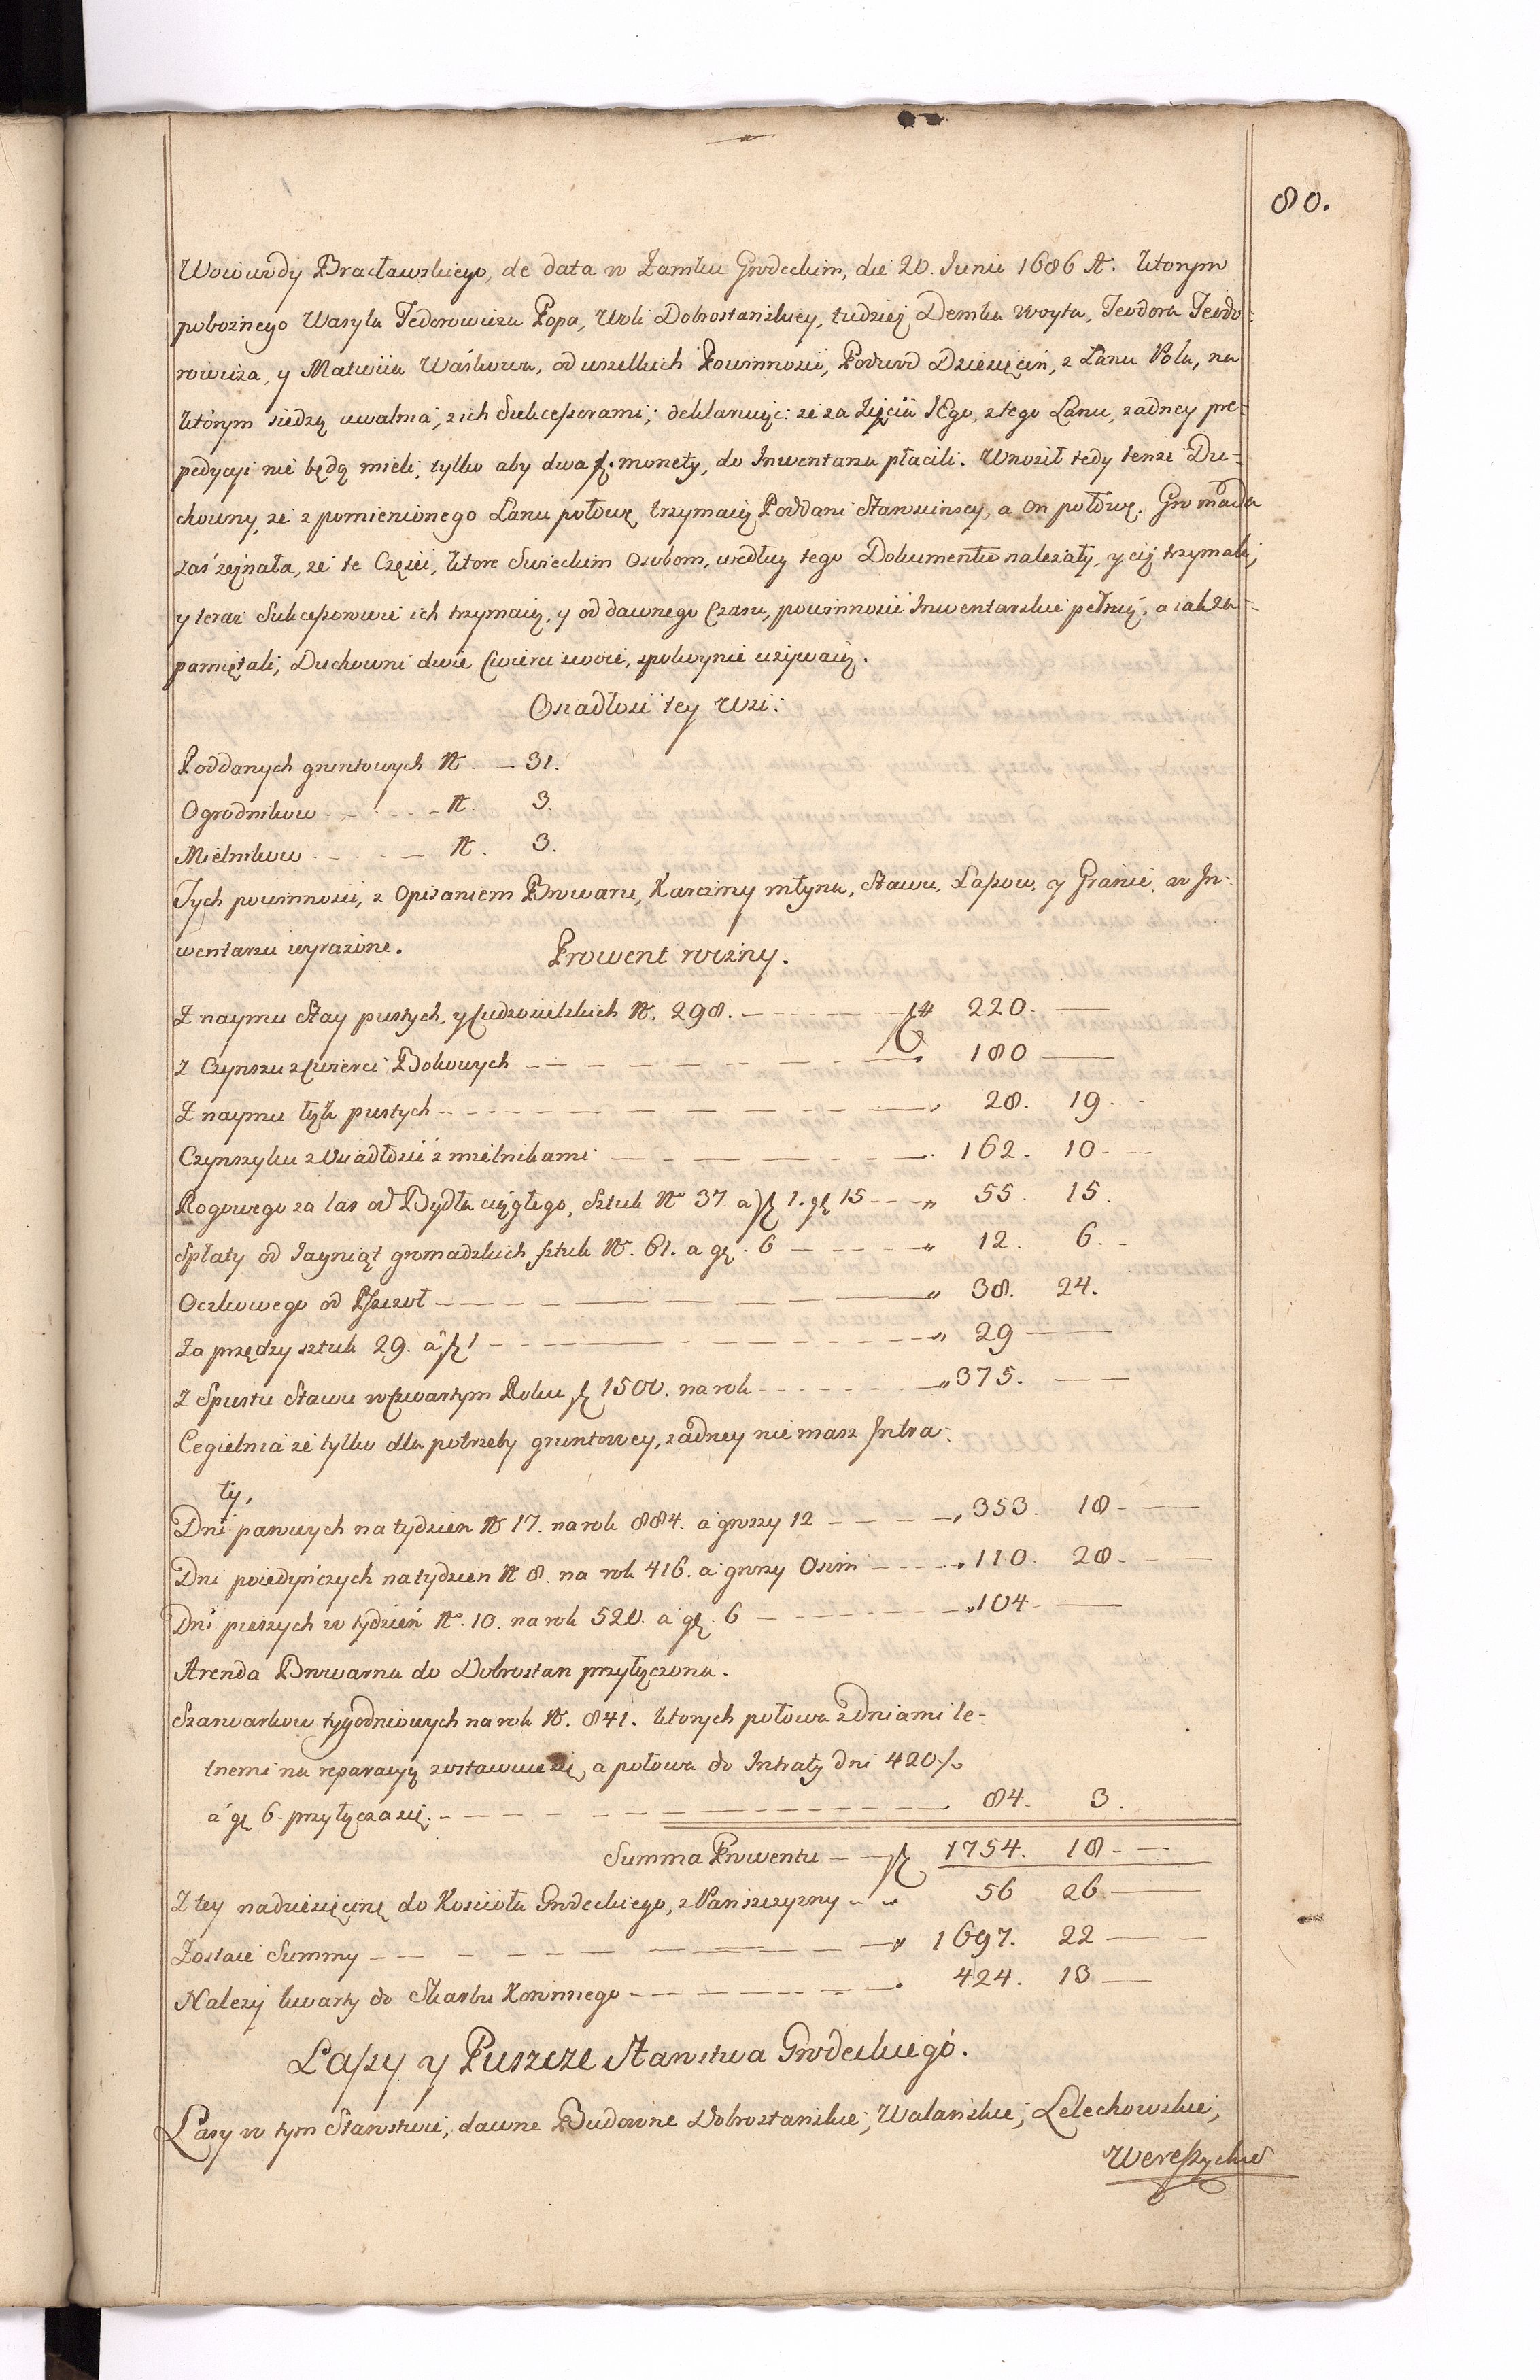 80.
Wowiwdy Bracławskiego, de data w Zamku Grodeckim, die 20. Iunii 1686 A. ktorym
pobożnego Wasyla Fedorowicza Popa, Woli Dobrostańskiey, tudziesz Demka Woyta, Teodora Teodo-
rowicza, y Matwiia Waśkowa, od wszelkich Powinnosci, Podwod Dziesięcin, z Łanu Pola, na
ktorym siedzą uwalnia, z ich Sukcessorami; deklaruiąc: że za życia IEgo, z tego Łanu, żadney pre-
pedycyi nie będą mieli, tylko aby dwa zł. monety, do Inwentarza płacili. Wnosił tedy tenze Du-
chowny, że z pomienionego Łanu połowę trzymaią Poddani Starościnscy, a on połowę. Gromada
zaś zeznała, że te Części, ktore Swieckim Osobom, według tego Dokumentu należały, y ciż trzymali,
y teraz Sukcessorowie ich trzymaią, y od dawnego Czasu, powinnosci Inwentarskie pełnią. a iak za-
pamiętali, Duchowni dwie Cwierci swoie, spokoynie używaią.
Osiadłosć tey Wsi:
Poddanych gruntowych N. — 31.
Ogrodnikow - - - - - N. 3.
Mielnikow - - - - — N. 3.
Tych powinnosci, z Opisaniem Browaru, Karczmy młyna, Stawu, Lassow, y Granic, w In-
wentarzu wyrażone. Prowent roczny.
Z naymu Stay pustych, y Cudzosielskich N. 298. - - - - zł 220. —
Z Czynszu z Cwierci Bokowych - - - - - - 180 —
Z naymu łąk pustych - - - - - - 28. 19 - -
Czynszyku z Osiadłosci z mielnikami - - - - - 162. 10 - -
Rogowego za las od Bydła ciągłego, Sztuk No 37. a zł 1. gr 15 - - - „ 55. 15.
Spłaty od Iagniąt gromadzkich sztuk N. 61. a gr. 6 - - - - „ 12. 6. -
Oczkowego od Pszczoł - - - - - - „ 38. 24.
Za przędzy sztuk 29. a zł 1 - - - - - - „ 29 —
Z Spustu Stawu w Czwartym Roku zł 1500. na rok - - - - - „ 375. —
Cegielnia że tylko dla potrzeby gruntowey, żadney nie masz Intra-
ty,
Dni parowych na tydzien N 17. na rok 884. a groszy 12 - - - - „ 353. 18 - —
Dni poiedyńczych na tydzien N 8. na rok 416. a groszy Osim - - - - „ 110. 28 - —
Dni pieszych w tydzień N. 10. na rok 520. a gr. 6 - - - - - „ 104 - —
Arenda Browarna do Dobrostan przyłączona.
Szarwarkow tygodniowych na rok N. 841. ktorych połowa z dniami le-
tnemi na reparacyą zostawuie się, a połowa do Intraty dni 420½
a gr 6. przyłącza się. - - - - - - 84. 3.
Summa Prowentu - — zł 1754. 18 - —
Z tey na dziesięcinę do Kosciola Grodeckiego, z Panszczyzny - - „ 56 26 —
Zostaie Summy - - - - - - „ 1697. 22 — -
Nalezy kwarty do Skarbu Koronnego - - - - - 424. 13 —
Lassy y Puszcze Starostwa Grodeckiego.
Lasy w tym Starostwie, dawne Budowne Dobrostańskie, Walańskie, Lelechowskie,
Wereszyckie